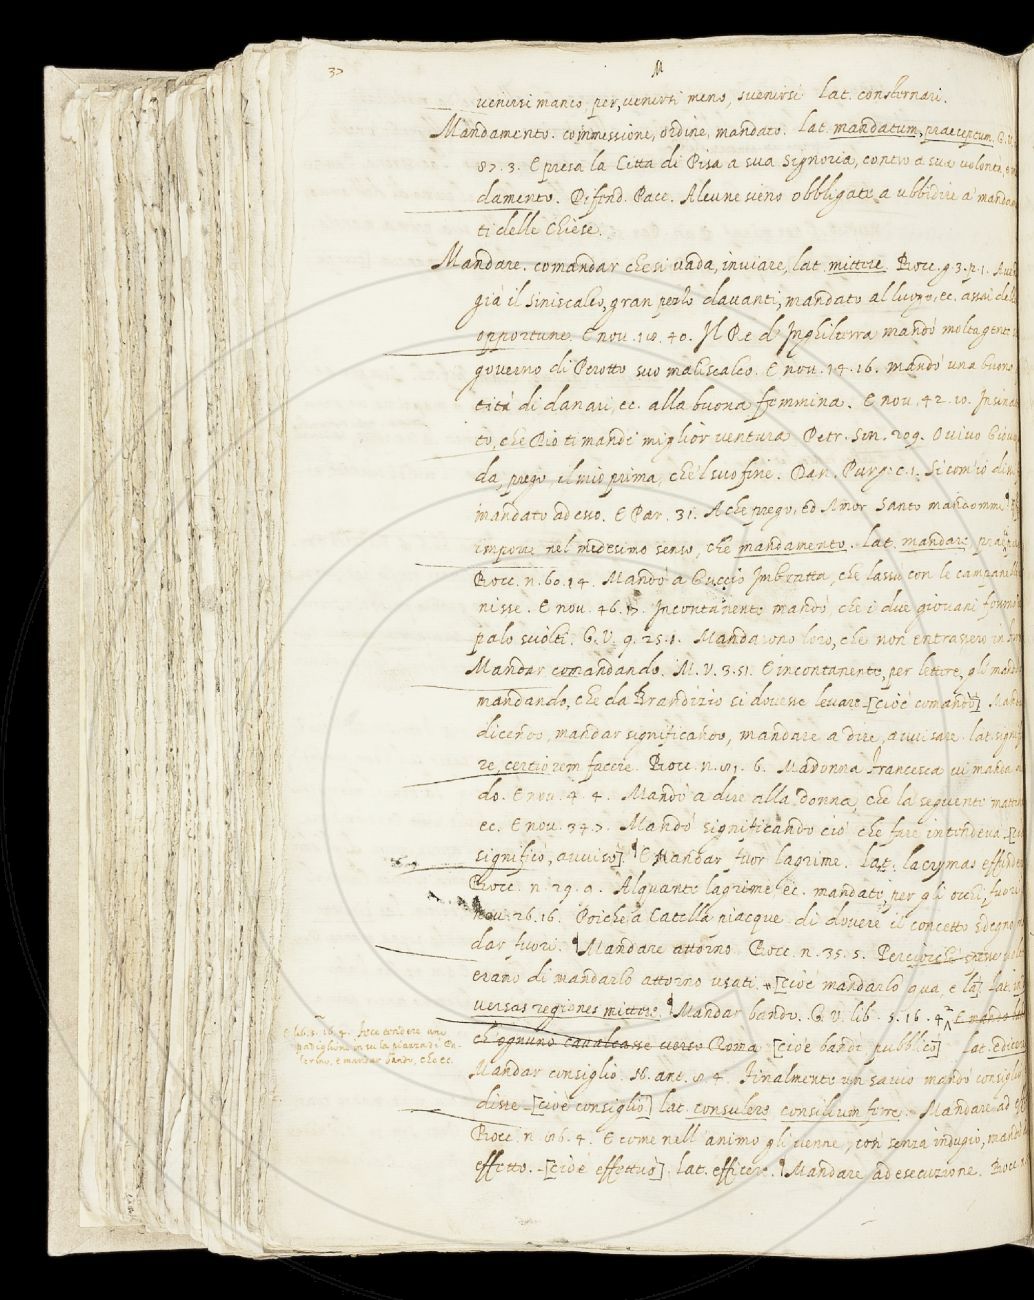 37
M
venirsi manco, per, venirsi meno, svenirsi. lat. consternari.
Mandamento. commessione, ordine, mandato. lat. mandatum, praeceptum. G. V.
87. 3. E presa la Citta di Pisa a sua Signoria, contro a sua volontà, e
damento. Difend. Pacc. Alcune sieno obbligate a ubbidire a' manda
ti delle Chiese.
Mandare. comandar che si vada, inviare, lat. mittere. Bocc. g. 3. p. 1.
già il Siniscalco, gran pezzo davanti, mandato al luogo, ec. assai del
opportune. E nov. 18. 40. Il Re d'Inghilterra mandò molta gente
governo di Perotto suo maliscalco. E nov. 14. 16. mandò una buona
tità di danari, ec. alla buona femmina. E nov. 42. 10.
to, che Dio ti mandi miglior ventura Petr. Son. 209. O vivo Giov
da, prego, il mio prima, che 'l suo fine. Dan. Purg. c. 1. Si com' io di
mandato ad esso. E Par. 31. A che prego, ed Amor Santo mandommi
impone nel medesimo senso, che mandamento. lat. mandare
Bocc. n. 60. 14. Mandò a Guccio Imbratta, che lassù con le campanelle
nisse. E nov. 46. 17. Incontanente mandò, che i due giovani fossono
palo svolti. G. V. 9. 25. 1. Mandarono loro, che non entrassero in
Mandar comandando. M. V. 3. 51. E incontanente, per lettere, gli mandò
mandando, che da Brandizio si dovesse levare [cioè comandò]
dicendo, mandar significando, mandare a dire, avvisare. lat. signi
re, certiorem facere. Bocc. n. 81. 6. Madonna Francesca vi manda
do. E nov. 4. 4. Mandò a dire alla donna, che la seguente mattina
ec. E nov. 34. 7. Mandò significando ciò che fare intendeva
significò, avvisò]. E Mandar fuor lagrime. lat. lacrymas
Bocc. n. 29. 9. Alquante lagrime, ec. mandate, per gli occhi, fuori
nov. 26. 16. Poichè a Catella piacque di dovere il concetto sdegno
dar fuori. Mandare attorno Bocc. n. 35. 5. Perciocchè
erano di mandarlo attorno usati. [cioè mandarlo qua, e là] lat.
versas regiones mittere. Mandar bando. G. V. lib. 5. 16. 4 E mandò
ch'ognuno cavalcasse verso Roma [cioè bandi pubblici] lat.
E lib. 5. 16. 4. Fece tendere uno
padiglione in su la piazza di
terbino, e mandar bando, che ec.
Mandar consiglio. N. ant. 8. 4. Finalmente un savio mandò consiglio
disse [cioè consigliò] lat. consulere consilium ferre. Mandare ad
Bocc. n. 86. 4. E come nell'animo gli venne, così senza indugio, mandò
effetto. [cioè effettuò]. lat. efficere. Mandare ad esecuzione. Bocc.